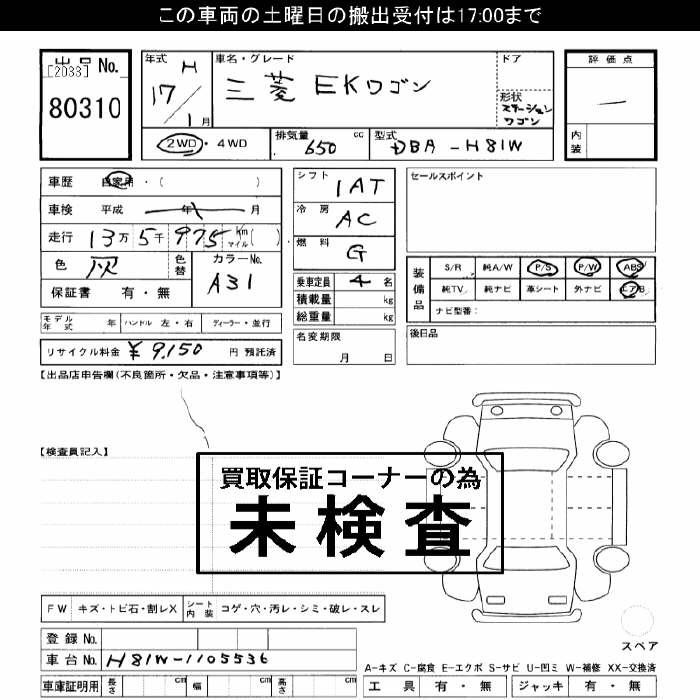 この車両の土曜日の搬出受付は17:00まで
出品 No.
[2033]
80310
年式 H
17/1月
車名・グレード
三菱 EKワゴン
ドア
形状
ステーション
ワゴン
評価点
—
内装
2WD・4WD
排気量 650 cc
型式 DBA-H81W
車歴 自家用・( )
車検 平成 年 月
走行 13万5千975 km マイル( )
色 灰
色替
カラーNo.
A31
保証書 有・無
モデル年式 年 ハンドル 左・右 ディーラー・並行
リサイクル料金 ¥9,150 円 預託済
シフト 1AT
冷房 AC
燃料 G
乗車定員 4 名
積載量 kg
総重量 kg
名変期限
月 日
セールスポイント
装備品
S/R 純A/W P/S P/W ABS
純TV 純ナビ 革シート 外ナビ エアB
ナビ型番:
後日品
【出品店申告欄(不良箇所・欠品・注意事項等)】
【検査員記入】
買取保証コーナーの為
未検査
FW キズ・トビ石・割レX シート内装 コゲ・穴・汚レ・シミ・破レ・スレ
スペア
登録 No.
車台 No. H81W-1105536
車庫証明用 長さ cm 幅 cm 高さ cm
A-キズ C-腐食 E-エクボ S-サビ U-凹ミ W-補修 XX-交換済
工具 有・無 ジャッキ 有・無